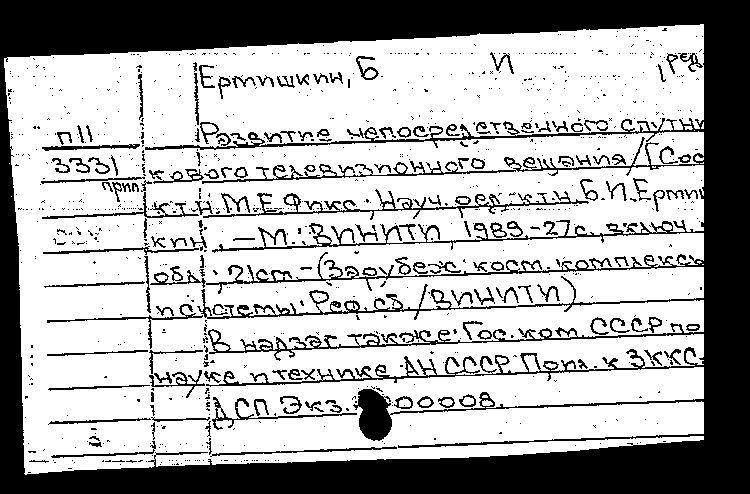 Ермишкин, Б И , ред
П11 Развитие непосредственного спутни
3331 кового телевизионного вещания / [Сос
прил. к.т.н. М.Е. Фикс; Науч. ред. к.т.н. Б.И. Ермиш
кин. – М.: ВИНИТИ, 1989. – 27с., включ.
обл.; 21см. – (Зарубеж. косм. комплексы
и системы: Реф. сб. / ВИНИТИ)
В надзаг. также: Гос. ком. СССР по
науке и технике, АН СССР. Прил. к ЗККС
ДСП. Экз. 00008.